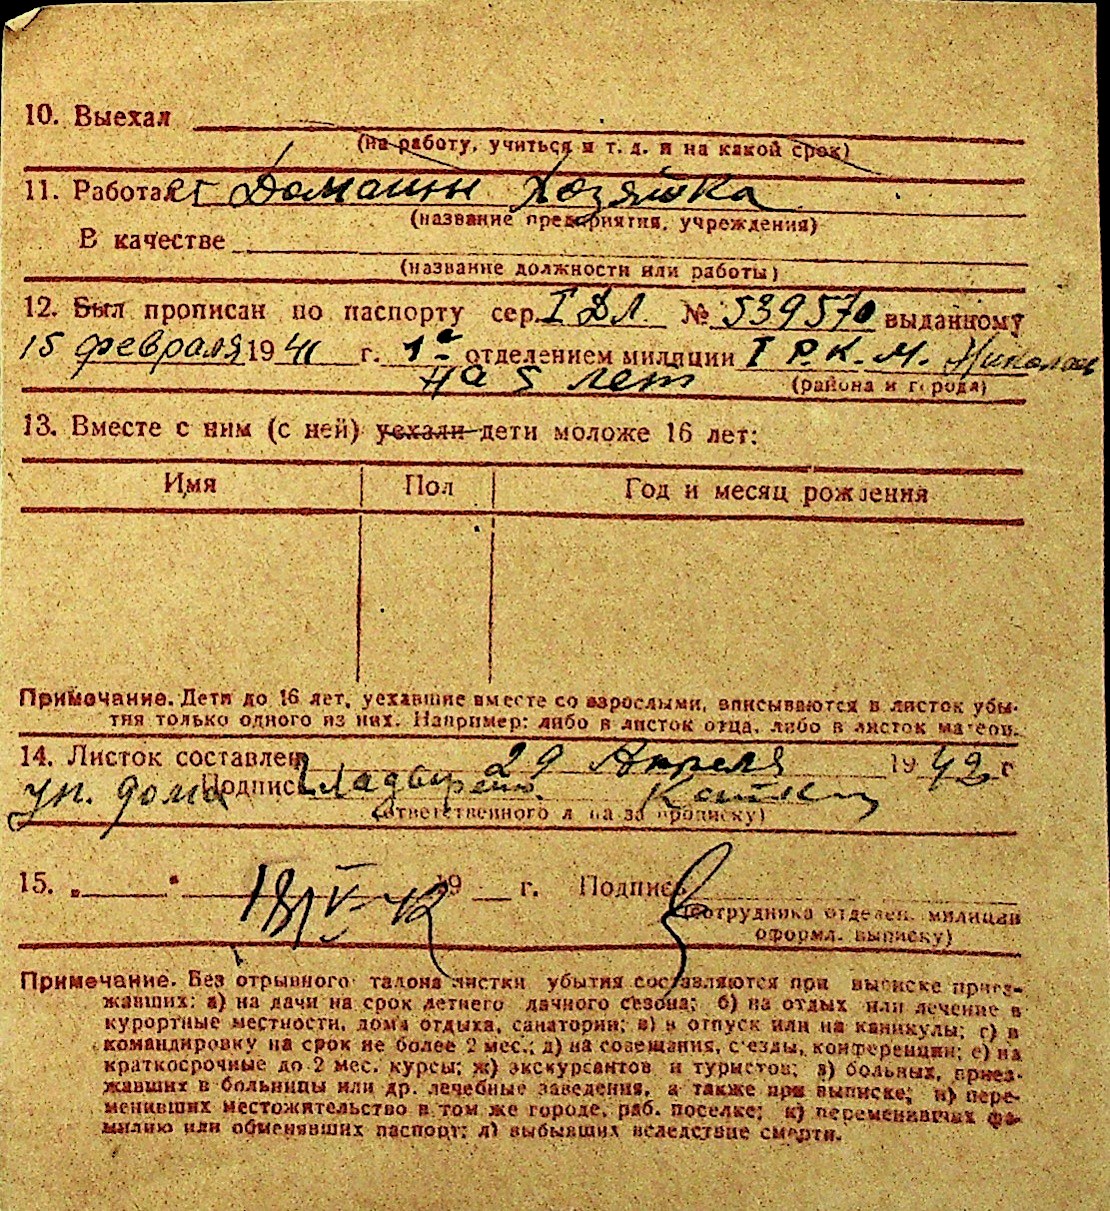 10. Выехал
(на работу, учиться и т. д. и на какой срок)
11. Работает Домашн Хозяйка
(название предприятия, учреждения)
В качестве
(название должности или работы)
12. Был прописан по паспорту сер. I ДЛ № 539570 выданному
15 февраля 1941 г. 1е отделением милиции I Р.К.М. Николаев
на 5 лет (района и города)
13. Вместе с ним (с ней) уехали дети моложе 16 лет:
Имя Пол Год и месяц рождения
Примечание. Дети до 16 лет, уехавшие вместе со взрослыми, вписываются в листок убы-
тия только одного из них. Например: либо в листок отца, либо в листок матери.
14. Листок составлен 29 Апреля 1942 г
уп. дома Подпись
(ответственного л ца за прописку)
15. „ " 18/V-42 19 г. Подпись
(сотрудника отделен. милиции
оформл. выписку)
Примечание. Без отрывного талона листки убытия составляются при выписке приез-
жавших: а) на дачи на срок летнего дачного сезона; б) на отдых или лечение в
курортные местности, дома отдыха, санатории; в) в отпуск или на каникулы; г) в
командировку на срок не более 2 мес.; д) на совещания, с'езды, конференции; е) на
краткосрочные до 2 мес. курсы; ж) экскурсантов и туристов; з) больных, приез-
жавших в больницы или др. лечебные заведения, а также при выписке; и) пере-
менивших местожительство в том же городе, раб. поселке; к) переменивших фа-
милию или обменявших паспорт; л) выбывших вследствие смерти.